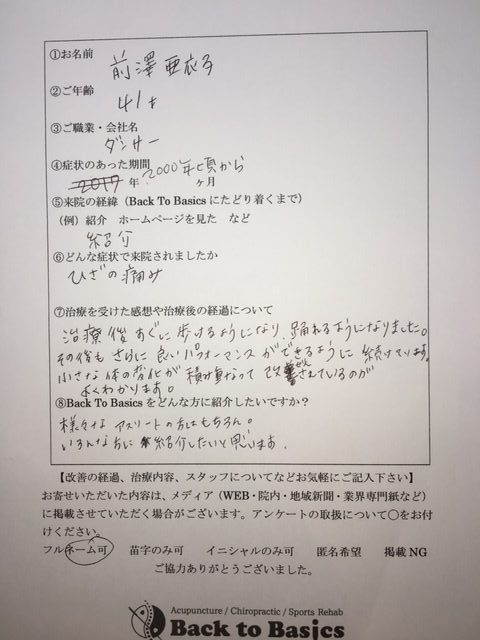 ①お名前
前澤亜衣子
②ご年齢
41才
③ご職業・会社名
ダンサー
④症状のあった期間
2017 年 2000年頃から
ヶ月
⑤来院の経緯（Back To Basics にたどり着くまで）
（例）紹介　ホームページを見た　など
紹介
⑥どんな症状で来院されましたか
ひざの痛み
⑦治療を受けた感想や治療後の経過について
治療後すぐに歩けるようになり、踊れるようになりました。
その後も さらに 良いパフォーマンス ができるように 続けています。
小さな体の変化が 積み重なって 改善されているのが
よくわかります。
⑧Back To Basics をどんな方に紹介したいですか？
様々な アスリートの方はもちろん。
いろんな方に 紹介したいと思います。
【改善の経過、治療内容、スタッフについてなどお気軽にご記入下さい】
お寄せいただいた内容は、メディア（WEB・院内・地域新聞・業界専門紙など）
に掲載させていただく場合がございます。アンケートの取扱について〇をお付
けください。
フルネーム可　苗字のみ可　イニシャルのみ可　匿名希望　掲載 NG
ご協力ありがとうございました。
Acupuncture / Chiropractic / Sports Rehab
Back to Basics